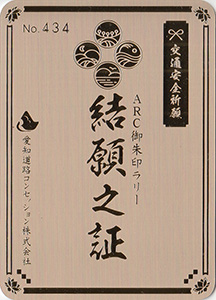 No.434
交通安全祈願
ARC御朱印ラリー
結願之証
愛知道路コンセッション株式会社